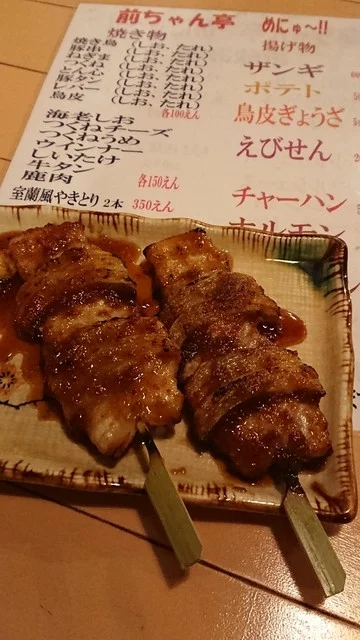 前ちゃん亭 めにゅ〜!!
焼き物
焼き鳥 (しお、たれ)
豚串 (しお、たれ)
ねぎま (しお、たれ)
つくね (しお、たれ)
しんぞ (しお、たれ)
豚タン (しお、たれ)
レバー (しお、たれ)
鳥皮 (しお、たれ)
各100えん
海老しお
つくねチーズ
つくねうめ
ウインナー
しいたけ
牛タン
鹿肉
各150えん
室蘭風やきとり 2本 350えん
揚げ物
ザンギ
ポテト
鳥皮ぎょうざ
えびせん
チャーハン
ホルモン